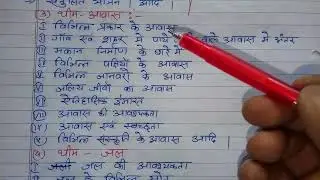 संतुलित भोजन आदि।
(3) थीम - आवास :
(i) विभिन्न प्रकार के आवास
(ii) गाँव एवं शहर में पाये वाले आवास में अंतर
(iii) मकान निर्माण के बारे में
(iv) विभिन्न पक्षियों के आवास
(v) विभिन्न जानवरों के आवास
(vi) जलिय जीवों का आवास
(vii) ऐतिहासिक इमारत
आवास की आवश्यकता
(ix) आवास एवं स्वच्छता
(x) विभिन्न संस्कृति के आवास आदि।
(4) थीम - जल
(i) जल की आवश्यकता
जल के विभिन्न